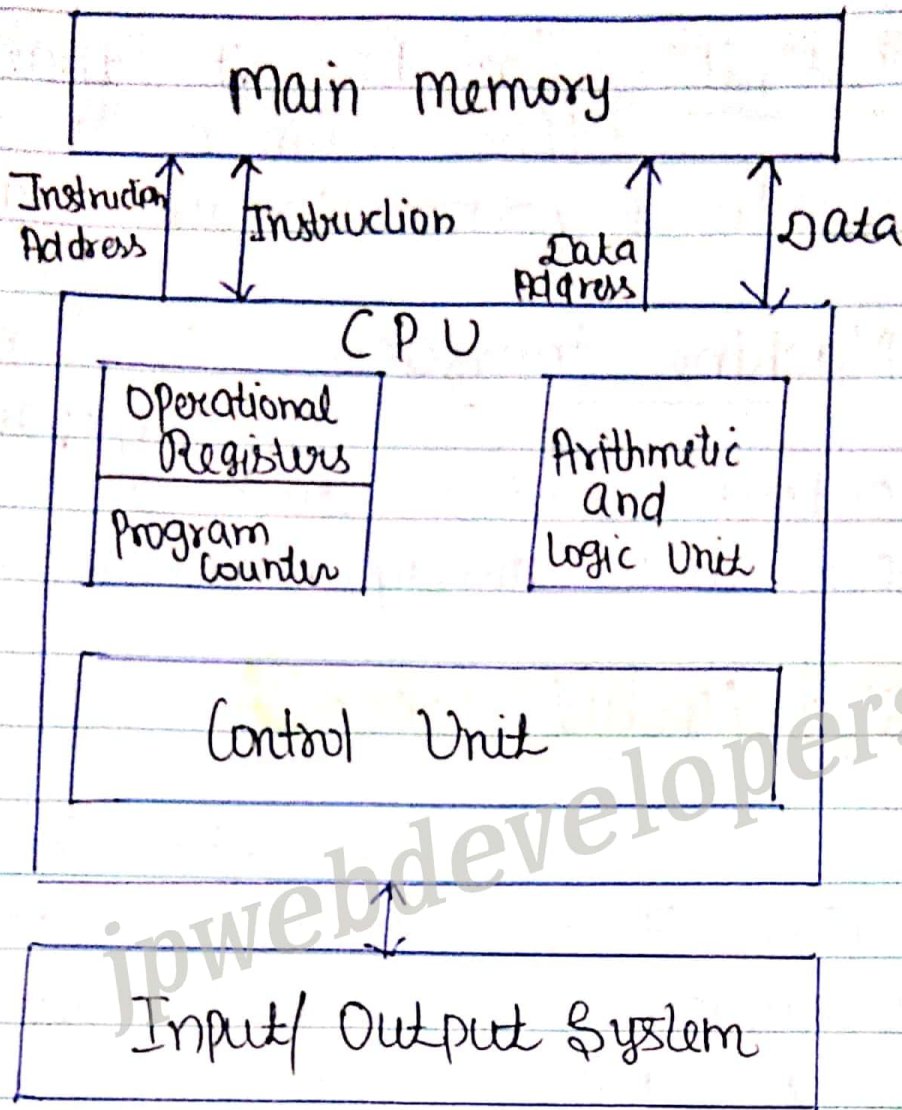 Main Memory
Instruction
Address
Instruction
Data
Address
Data
CPU
Operational
Registers
Program
Counter
Arithmetic
and
Logic Unit
Control Unit
Input/ Output System
jpwebdevelopers